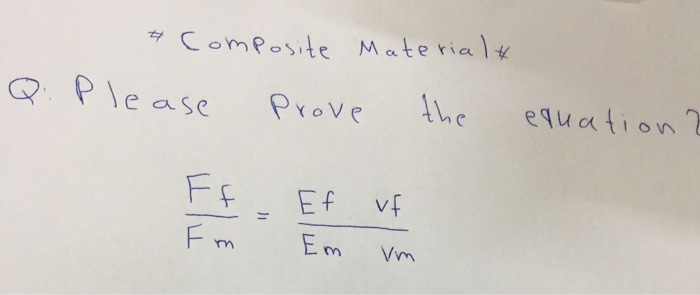 # Composite Material *
Q: Please Prove the equation?
Ff / Fm = Ef vf / Em Vm